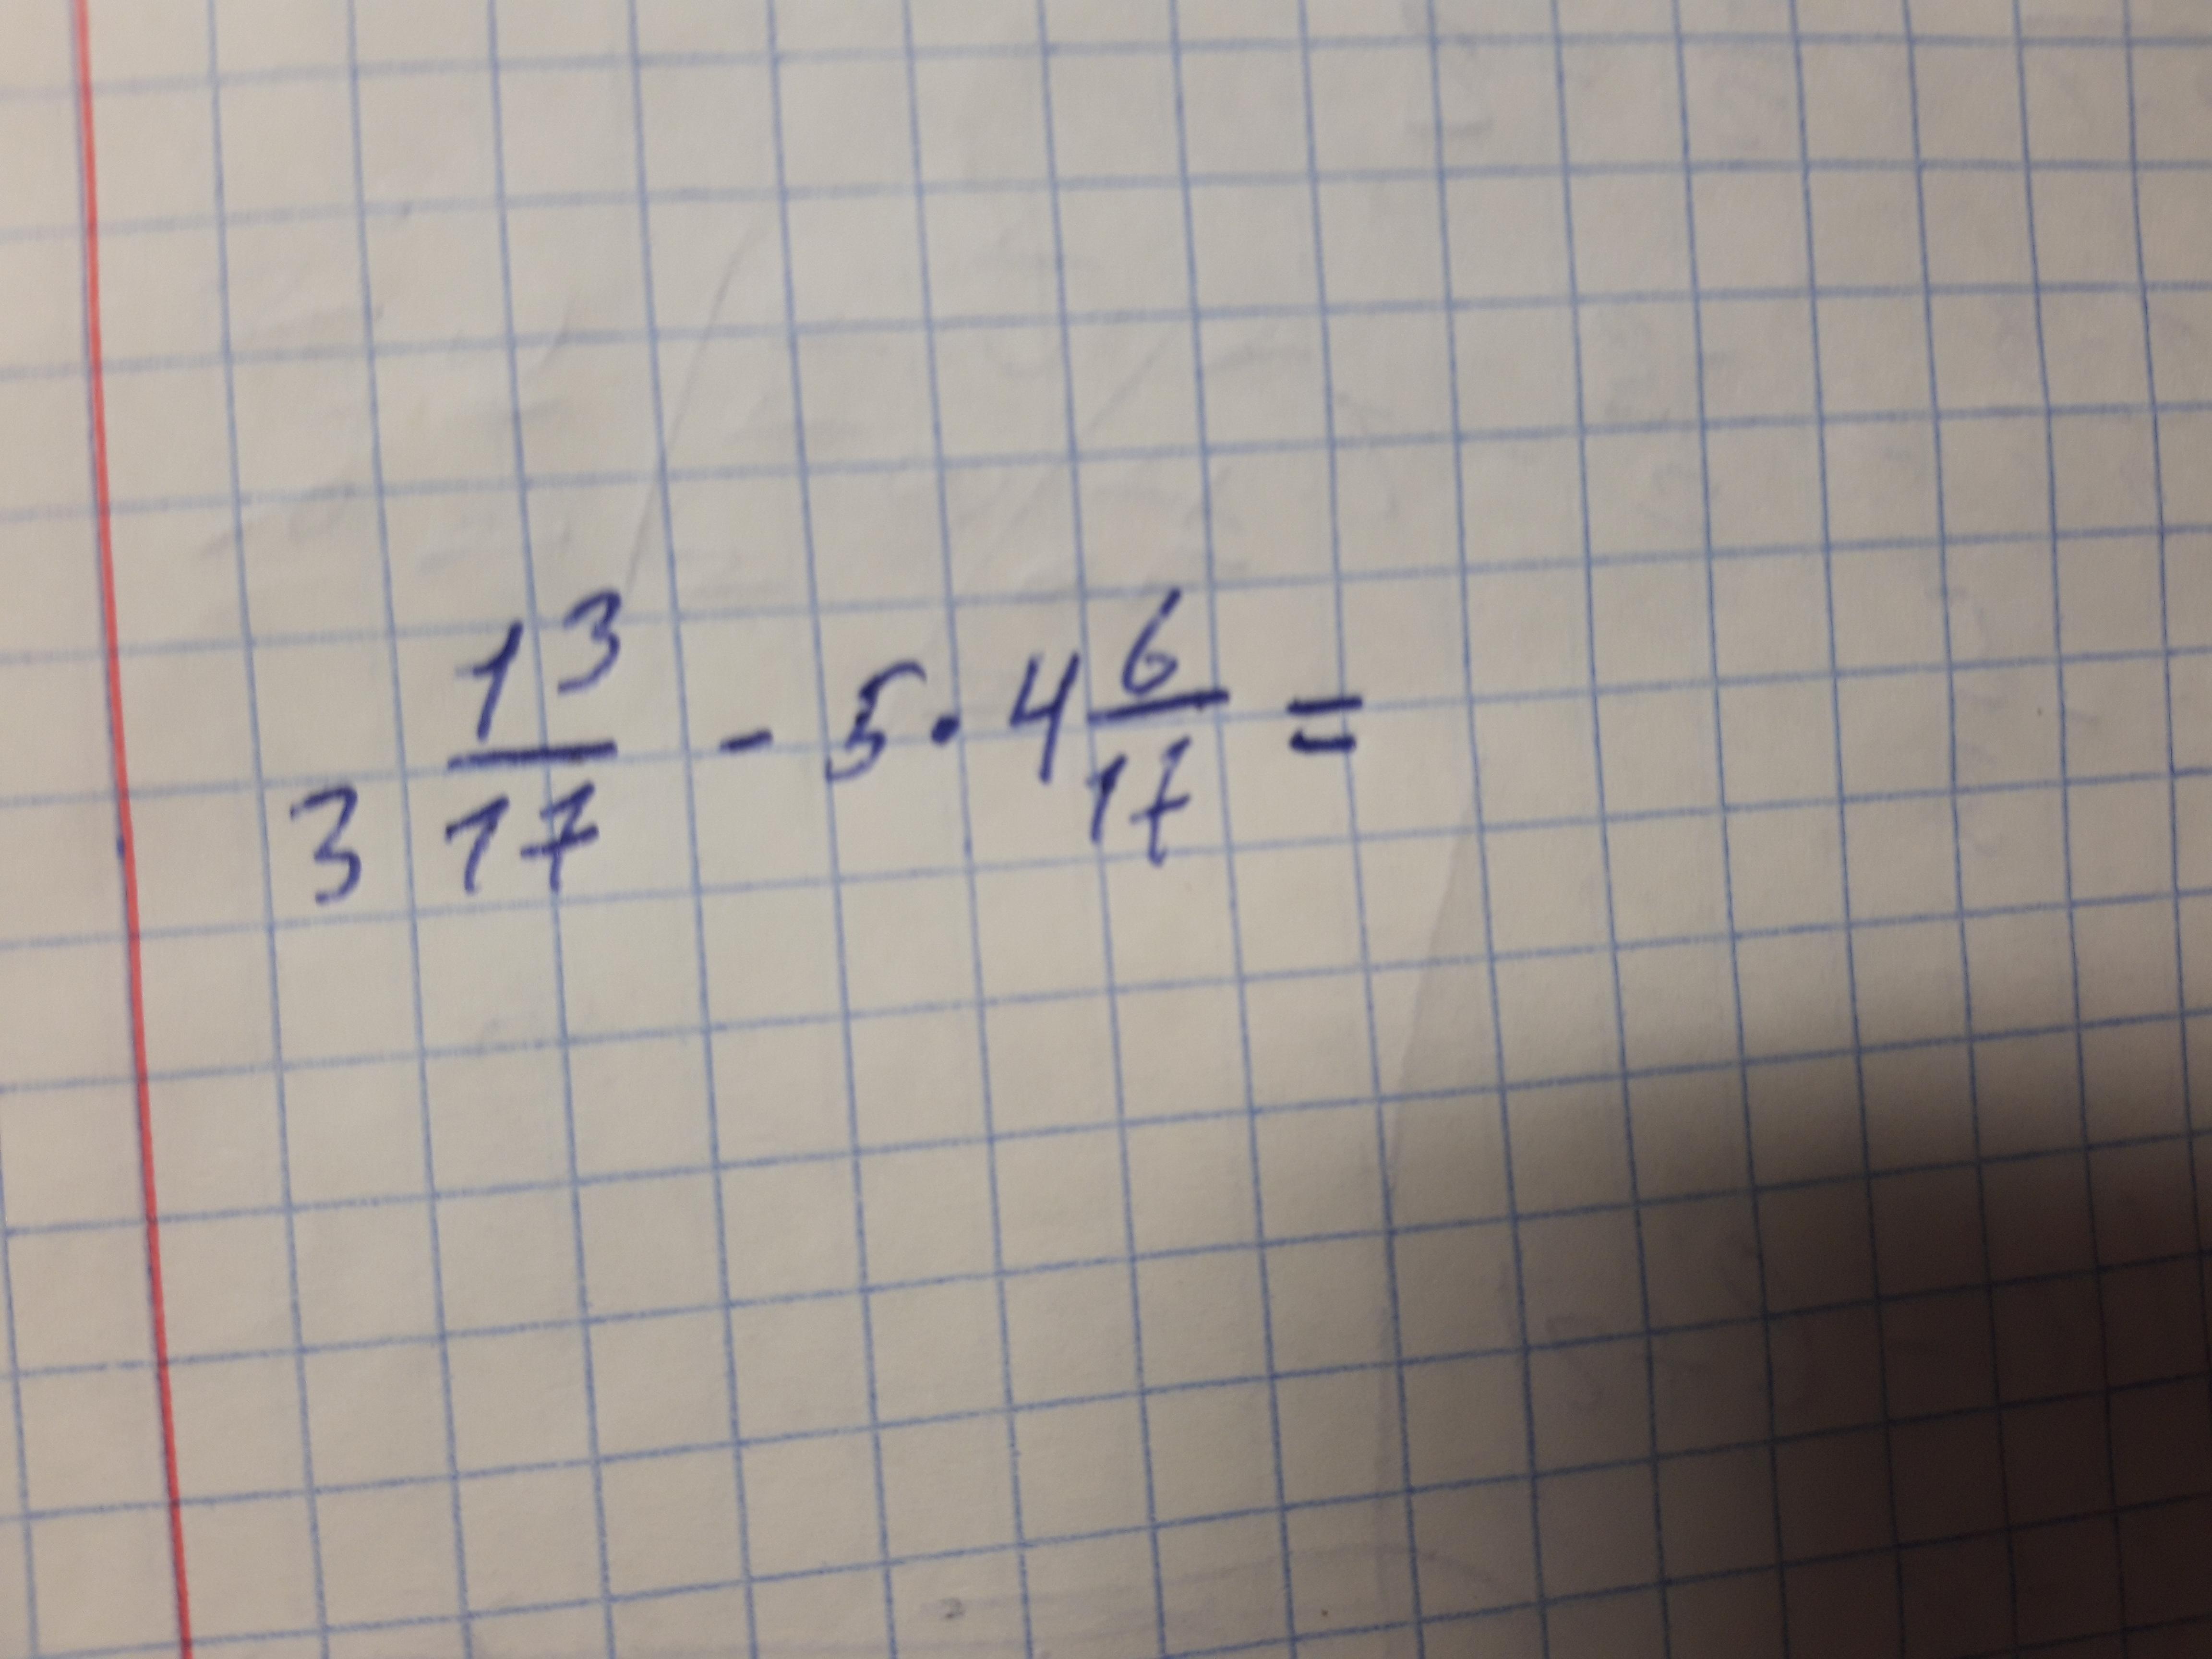 3 13/17 - 5 · 4 6/17 =